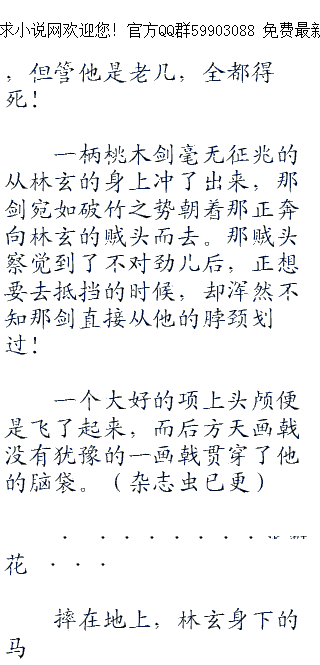 求小说网欢迎您！官方QQ群59903088 免费最新
，但管他是老几，全都得
死！
一柄桃木剑毫无征兆的
从林玄的身上冲了出来，那
剑宛如破竹之势朝着那正奔
向林玄的贼头而去。那贼头
察觉到了不对劲儿后，正想
要去抵挡的时候，却浑然不
知那剑直接从他的脖颈划
过！
一个大好的项上头颅便
是飞了起来，而后方天画戟
没有犹豫的一画戟贯穿了他
的脑袋。（杂志虫已更）
．．．．．．．．
花 ．．．
摔在地上，林玄身下的
马